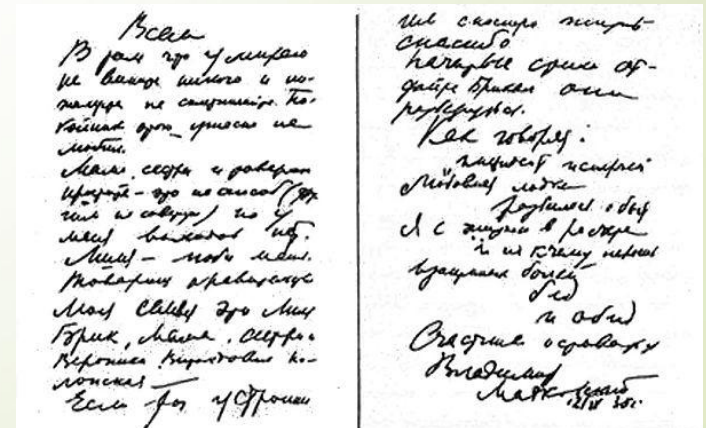 Всем
В том что умираю
не вините никого и по-
жалуйста не сплетничайте. По-
койник этого ужасно не
любил.
Мама, сестры и товарищи
простите – это не способ (дру-
гим не советую) но у
меня выходов нет.
Лиля – люби меня.
Товарищ правительство
моя семья это Лиля
Брик, мама, сестры и
Вероника Витольдовна По-
лонская –
Если ты устроишь
им сносную жизнь –
спасибо
Начатые стихи от-
дайте Брикам они
разберутся.
Как говорят:
инцидент исперчен
Любовная лодка
разбилась о быт
Я с жизнью в расчете
и не к чему перечень
взаимных болей
бед
и обид
Счастливо оставаться
Владимир
Маяковский
12/IV 30г.